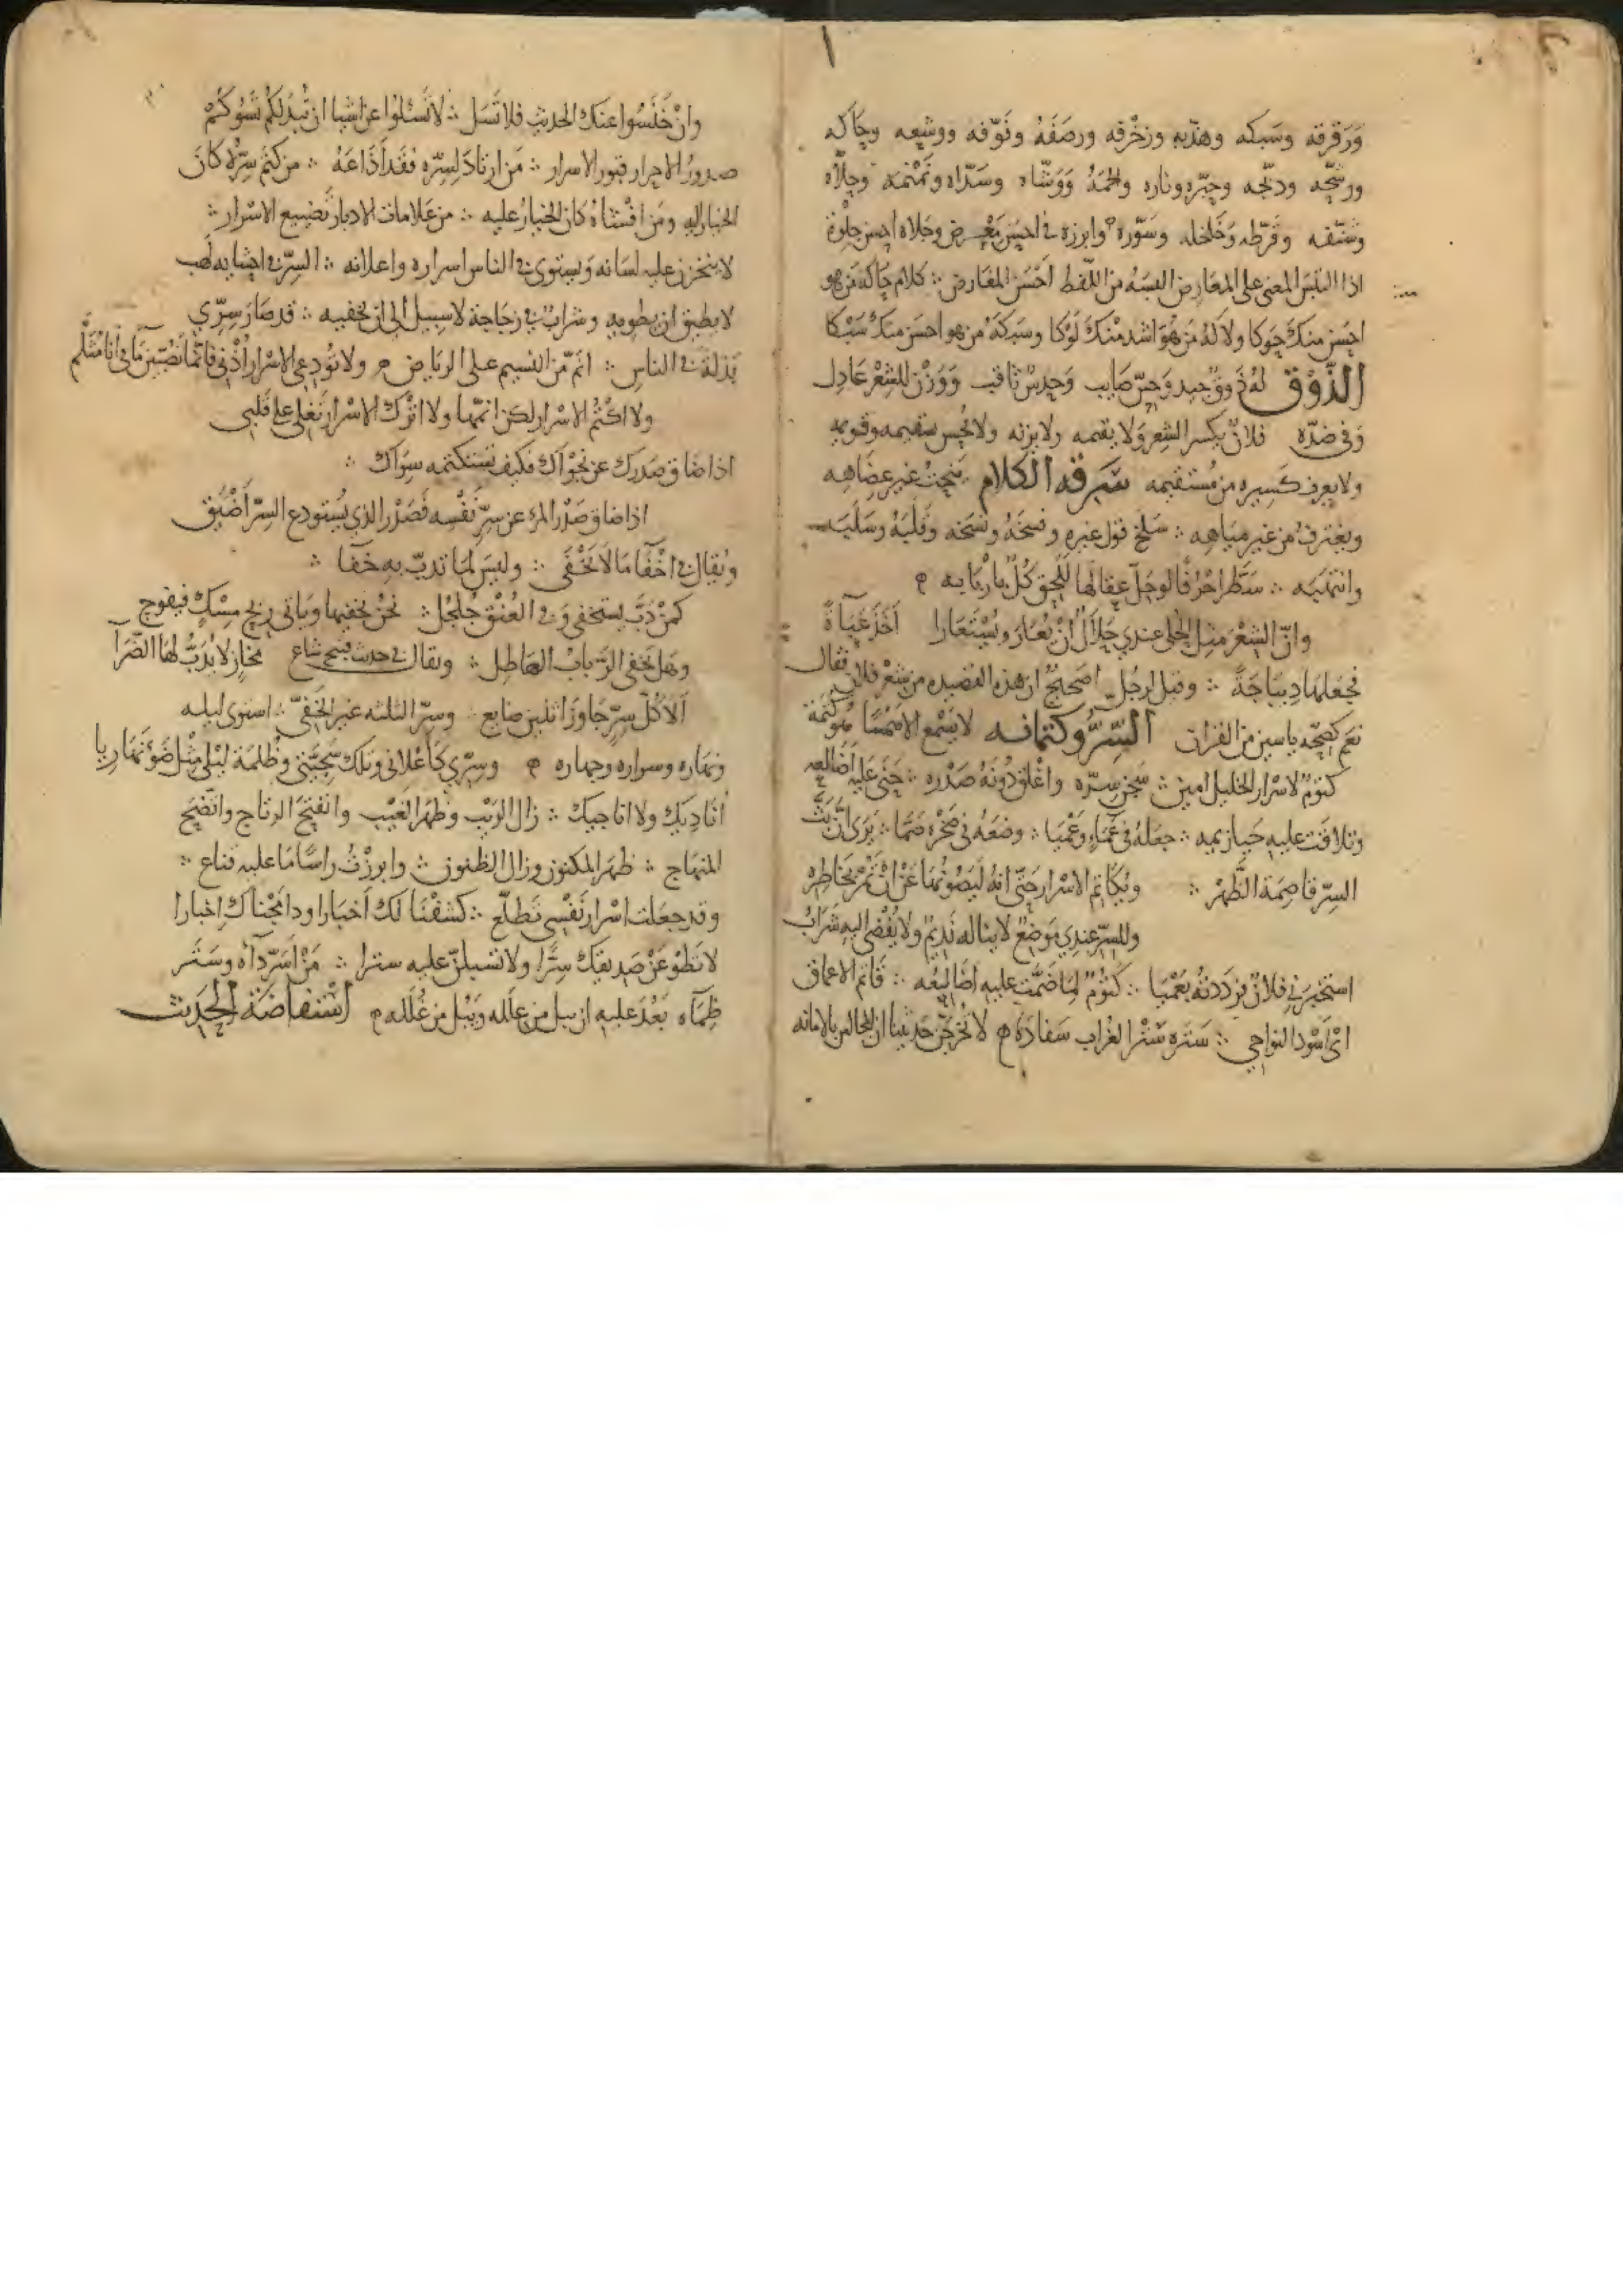 ورقرقه وسبكه وهذبه وزخرفه ورصفه وفوفه ووشعه وحاكه
ورشحه ودبجه وحبره وناره والحمه ووشاه وسداه ونمنمه وحلاه
وشنفه وقرطه وخلخله وسوره وابرزه في احسن معرض وجلاه احسن جلوة
اذا التبس المعنى على المعارض البسه من اللفظ احسن المعارض ∴ كلام حاكه من هو
احسن منك حوكا ولاكه من هو اشد منك لوكا وسبكه من هو احسن منك سبكا
الذوق له ذوق جيد وحس صايب وحدس ثاقب ووزن للشعر عادل
وفي ضده فلان يكسر الشعر ولا يقيمه ولا يزنه ولا يحس سقيمه وقويمه
ولا يعرف كسيره من مستقيمه سرقه الكلام ينحت غير عضاهه
ويغترف من غير مياهه ∴ سلخ قول غيره وفسخه ونسخه وقلبه وسلبه
وانتهبه ∴ سطر احرفا لو حل عقالها للحق كل باربابه
وان الشعر مثل الحلي عندي حلال ان يعار ويستعارا اخذ عباءة
فجعلها ديباجة ∴ وقيل لرجل اصحيح ان هذه القصيده من شعر فلان فقال
نعم كصحه ياسين من القران السر وكتمانه لا يسمع الا همسا
كتوم لاسرار الخليل امين ∴ سجن سره واغلق دونه صدره ∴ حنى عليه اضالعه
وتلاقت عليه حيازيمه ∴ جعله في عماء وعميا ∴ وضعه في صخره صما ∴ يرى ان بث
السر قاصمة الظهر ∴ ويكاتم الاسرار حتى انه ليصونها عن ان تمر بخاطره
وللسر عندي موضع لا يناله نديم ولا يفضي اليه شراب
استخبرني فلان فرددته بعميا ∴ كتوم لما ضمت عليه اضالعه ∴ قاتم الاعماق
اي اسود النواحي ∴ ستره ستر الغراب سفاده لا تخرجن حديثنا ان المجالس بالامانه
وان خلسوا عنك الحديث فلا تسل ∴ لا تسئلوا عن اشيا ان تبد لكم تسؤكم
صدور الاحرار قبور الاسرار ∴ من ارتاد لسره فقد اذاعه ∴ من كتم سره كان
الخيار اليه ومن افشاه كان الخيار عليه ∴ من علامات الادبار تضييع الاسرار ∴
لا يخزن عليه لسانه ويستوي في الناس اسراره واعلانه ∴ السر في احشايه لهب
لا يطيق ان يطويه وشراب في زجاجة لا سبيل الى ان يخفيه ∴ قد صار سري
بذلة في الناس ∴ انم من النسيم على الرياض ولا تودعي الاسرار اذني فانما تصبين ما في انا مثلم
ولا اكتم الاسرار لكن انمها ولا اترك الاسرار تغلي على قلبي
اذا ضاق صدرك عن نجواك فكيف تستكتمه سواك ∴
اذا ضاق صدر المرء عن سر نفسه فصدر الذي يستودع السر اضيق
ويقال في اخفا ما لا يخفى ∴ وليس لما تدب به خفا ∴
كمن دب يستخفي وفي العنق جلجل ∴ نحن نخفيها وياتي ريح مسك فيفوح
وهل يخفى الرباب الهاطل ∴ ويقال في حديث قبيح شاع لا يدب لها الضرا
الا كل سر جاوز اثنين ضايع ∴ وسر الثلثه غير الخفي ∴ استوى ليله
ونهاره وسراره وجهاره وسري كاعلاني وتلك سجيتي وظلمة ليلي مثل ضوء نهاريا
اناديك ولا اناجيك ∴ زال الريب وظهر الغيب وانفتح الرتاج واتضح
المنهاج ∴ ظهر المكنون وزال الظنون ∴ وابرزت راسا ما عليه قناع ∴
وقد جعلت اسرار نفسي تطلع ∴ كشفنا لك اخبارا اخبارا
لا تطو عن صديقك سرا ولا تسبلن عليه سترا ∴ من اسر داه وستر
ظماه بعد عليه ان يبل من علله ويبل من غلله استفاضة الحديث